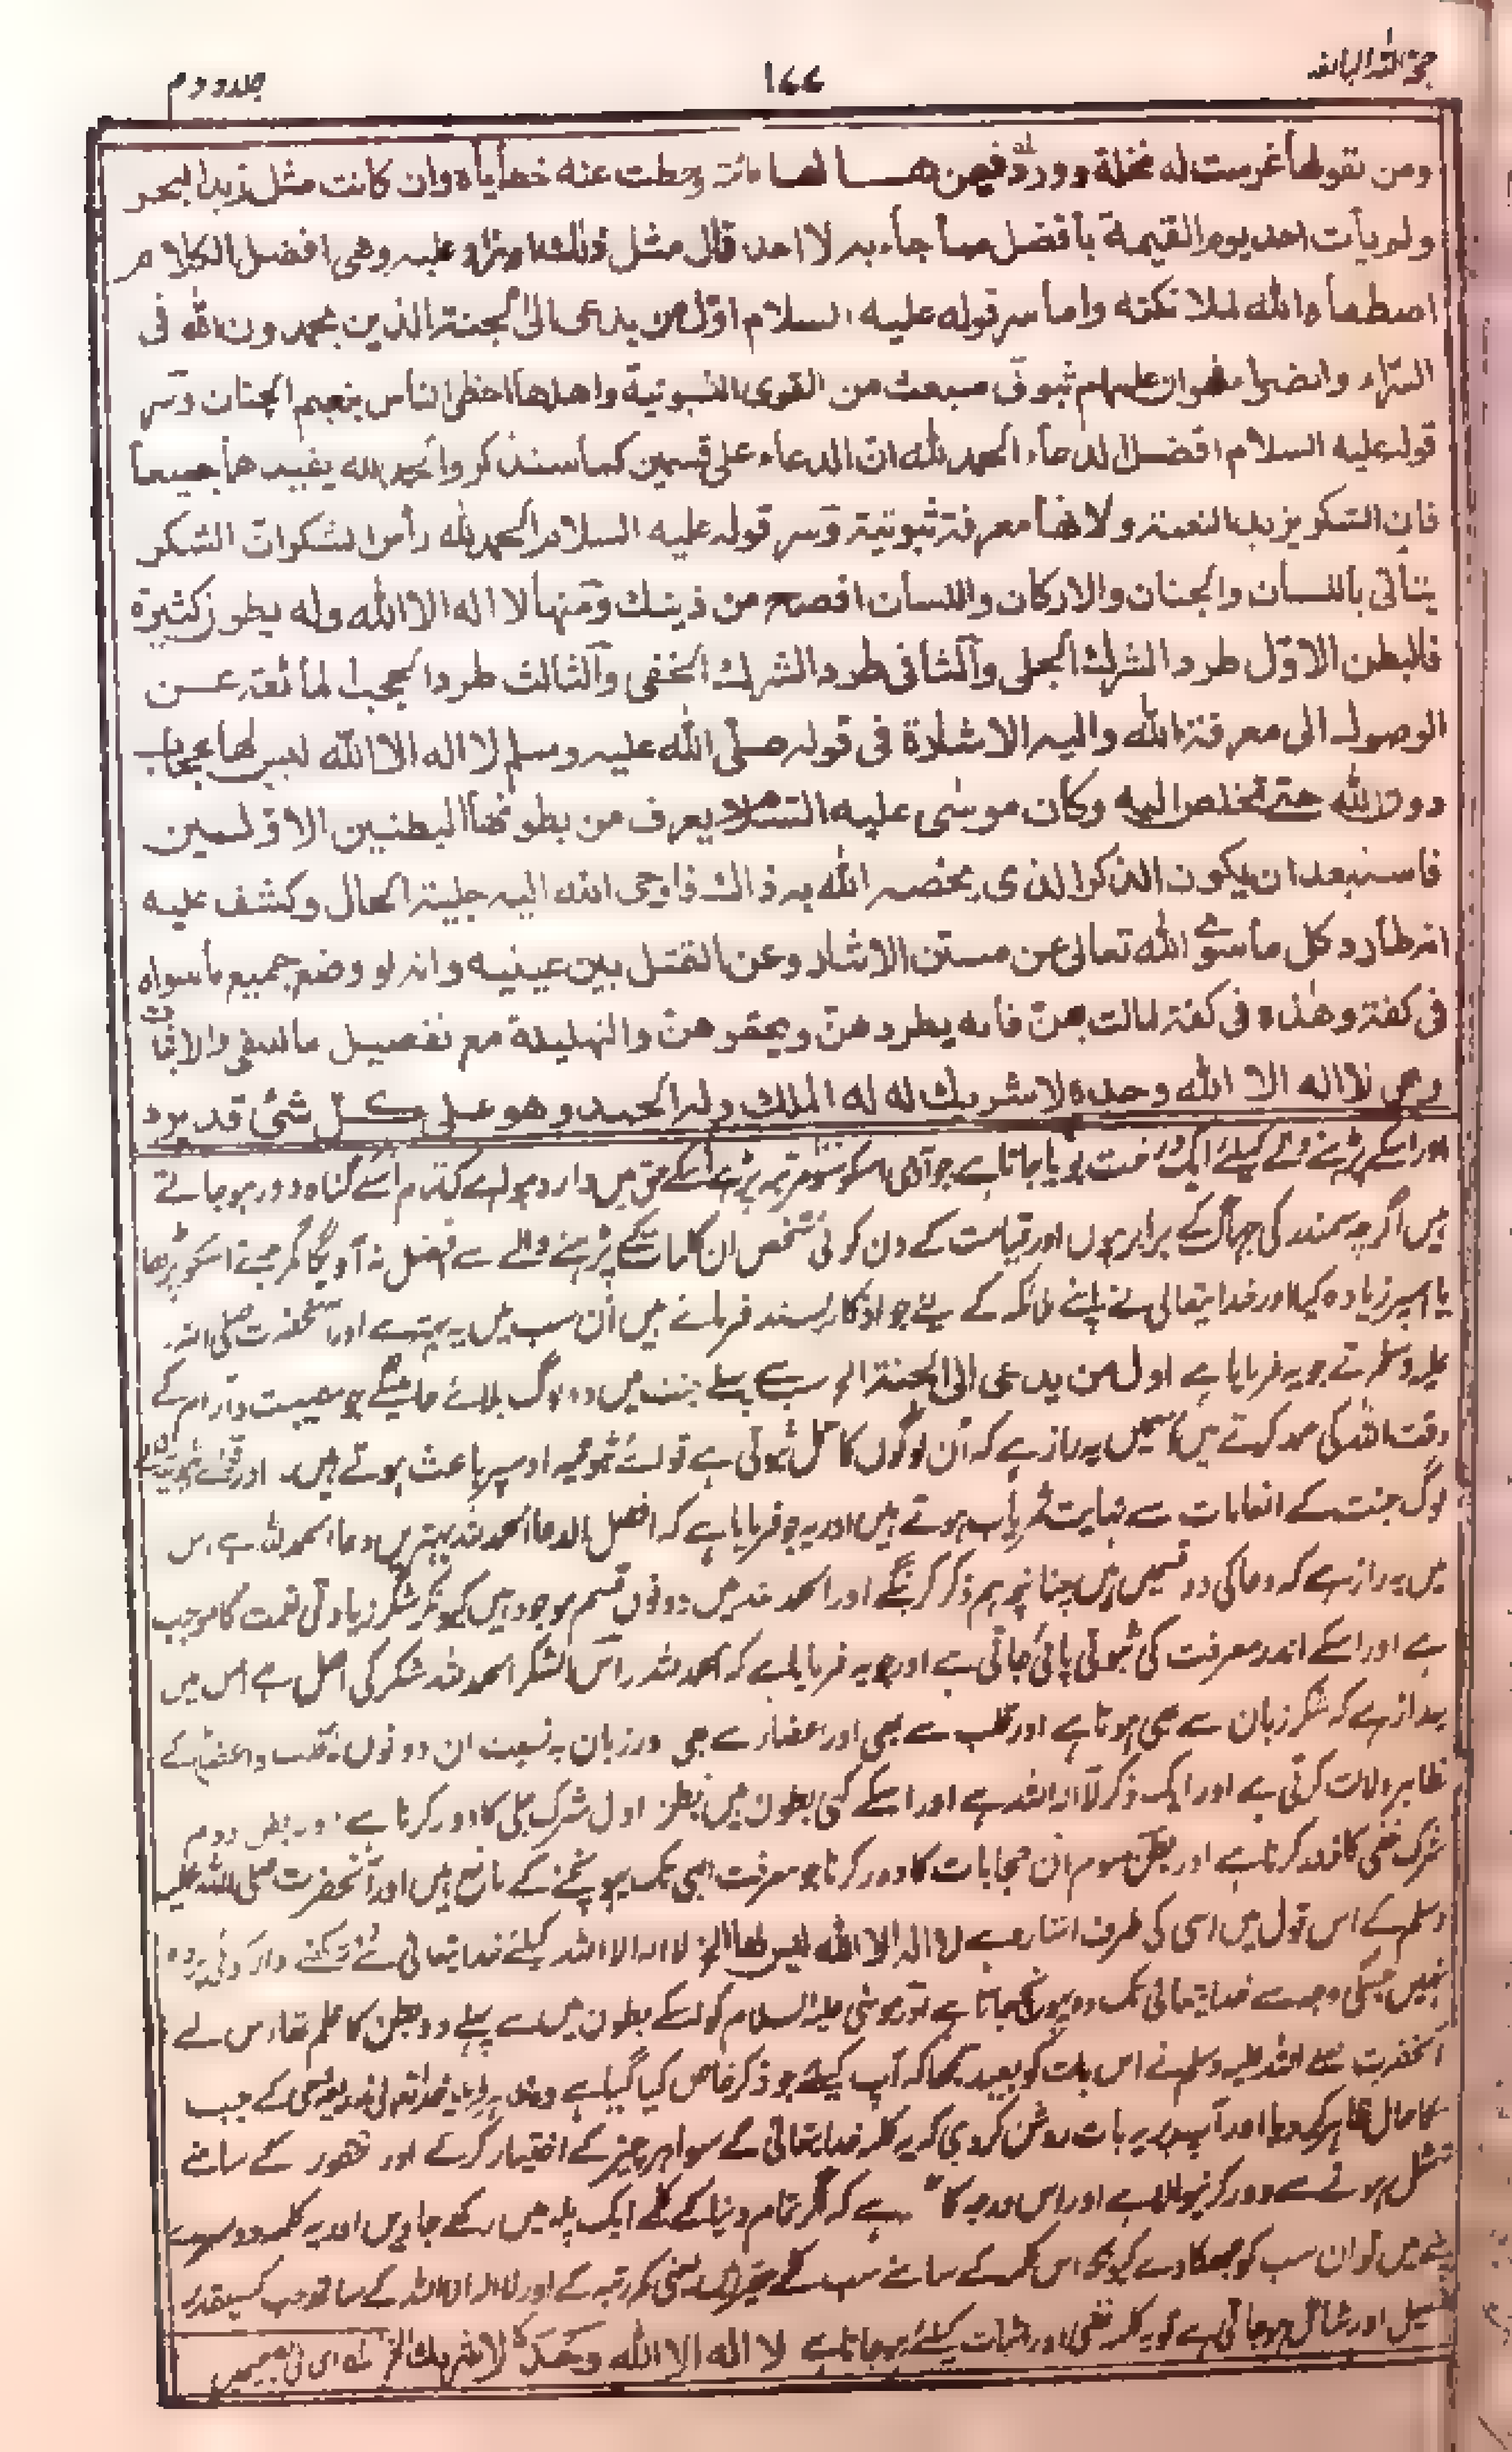 حجۃ اللہ البالغہ
۱۷۷
جلد دوم
ومن تقولها غرست له نخلة وورد فيمن قالها مائة وحطت عنه خطاياه وان كانت مثل زبد البحر
ولم يأت احد يوم القيمة بأفضل مما جاء به الا احد قال مثل ذلك او زاد عليه وهى افضل الكلام
اصطفاه الله لملائكته واما سر قوله عليه السلام اول من يدعى الى الجنة الذين يحمدون الله فى
السراء والضراء عليهم ثبوتى منبعث من القوى الثبوتية واهلها احظى الناس بنعيم الجنان وسر
قوله عليه السلام افضل الدعاء الحمد لله ان الدعاء على قسمين كما سنذكر والحمد لله يفيدهما جميعا
فان الشكر يزيد النعمة ولانها معرفة ثبوتية وسر قوله عليه السلام الحمد لله رأس الشكر ان الشكر
يتأتى باللسان والجنان والاركان واللسان افصح من ذينك ومنها لا اله الا الله وله بطون كثيرة
فالبطن الاول طرد الشرك الجلى والثانى طرد الشرك الخفى والثالث طرد الحجب المانعة عن
الوصول الى معرفة الله واليه الاشارة فى قوله صلى الله عليه وسلم لا اله الا الله ليس لها حجاب
دون الله حتى تخلص اليه وكان موسى عليه السلام يعرف من بطونها البطنين الاولين
فاستبعد ان يكون الذكر الذى يخصه الله به ذاك فاوحى الله اليه جلية الحال وكشف عليه
انه طارد كل ما سوى الله تعالى عن مستن الايثار وعن التمثل بين عينيه وانه لو وضع جميع ما سواه
فى كفة وهذه فى كفة لمالت بهن فانه يطردهن ويحقرهن والتهليلة مع تفصيل ما للنفى والاثبات
وهى لا اله الا الله وحده لا شريك له له الملك وله الحمد وهو على كل شئ قدير
اور اسکے پڑہنے والے کیلئے ایک درخت بویا جاتا ہے جو آدمی اسکو سَو مرتبہ پڑہے اسکے حق میں وارد ہوا ہے کہ تمام اُسکے گناہ دور ہو جاتے
ہیں اگرچہ سمندر کی جہاگ کے برابر ہوں اور قیامت کے دن کوئی شخص ان کلمات کے پڑہنے والے سے افضل نہ آویگا مگر جسنے اسکو پڑھا
یا اسپر زیادہ کیا اور خدا یتعالی نے اپنے ملائکہ کے لیئے جو اذکار پسند فرمائے ہیں اُن سب میں یہ بہتر ہے اور آنحضرت صلی اللہ
علیہ وسلم نے جو یہ فرمایا ہے اول من يدعى الى الجنة الخ سب سے پہلے جنت میں وہ لوگ بلائے جاینگے جو مصیبت و آرام کے
وقت اللہ کی حمد کہتے ہیں اسمیں یہ راز ہے کہ اُن لوگوں کا عمل ثبوتی ہے قوائے ثبوتیہ اوسپر باعث ہوتے ہیں اور قوائے ثبوتیہ
لوگ جنت کے انعامات سے نہایت بہریاب ہوتے ہیں اور یہ جو فرمایا ہے کہ افضل الدعا الحمد للہ بہترین دعا الحمد للہ ہے اس
میں یہ راز ہے کہ دعا کی دو قسمیں ہیں چنانچہ ہم ذکر کرینگے اور الحمد للہ میں دونوں قسم موجود ہیں کیونکر شکر زیادتی نعمت کا موجب
ہے اور اسکے اندر معرفت کی ثبوتی پائی جاتی ہے اور جو یہ فرمایا ہے کہ الحمد للہ رأس الشکر الحمد للہ شکر کی اصل ہے اس میں
یہ راز ہے کہ شکر زبان سے بھی ہوتا ہے اور قلب سے بھی اور اعضاء سے بھی اور زبان بہ نسبت ان دونوں قلب و اعضا کے
ظاہر دلالت کرتی ہے اور ایک ذکر لا الہ الا اللہ ہے اور اسکے کئی بطون ہیں بطن اول شرک جلی کا دور کرتا ہے اور بطن دوم
شرک خفی کا دور کرتا ہے اور بطن سوم ان حجابات کا دور کرتا جو معرفت الہی تک پہونچنے کے مانع ہیں اور آنحضرت صلی اللہ علیہ
وسلم کے اس قول میں اسی کی طرف اشارہ ہے لا اله الا الله ليس لها الخ لا الہ الا اللہ کیلئے خدا یتعالی سے روکنے والا کوئی پردہ
نہیں جسکی وجہ سے خدا یتعالی تک وہ پہونچ جاتا ہے اور موسیٰ علیہ السلام کو اسکے بطون میں سے پہلے دو بطن کا علم تھا اس لئے
آنحضرت صلے اللہ علیہ وسلم نے اس بات کو بعید سمجھا کہ آپ کیلئے جو ذکر خاص کیا گیا ہے
کا حال ظاہر کر دیا اور آپ پر یہ بات روشن کر دی کہ یہ کلمہ خدا یتعالی کے سوا ہر چیز کے اختیار کرنے اور کے سامنے
متمثل ہونے سے دور کرنیوالا ہے اور اس درجہ کا ہے کہ اگر تمام دنیا کے ایک پلہ میں رکھے جاویں اور یہ کلمہ دوسرے
پلے میں تو ان سب کو جھکا دے کیونکہ اس کے سامنے سب کے اور لا الہ الا اللہ کے ساتھ جب کسیقدر
تفصیل اور شامل ہو جاتی ہے تو یہ کلمہ نفی اور اثبات کیلئے ہو جاتا ہے لا اله الا الله وحده لا شريك الخ